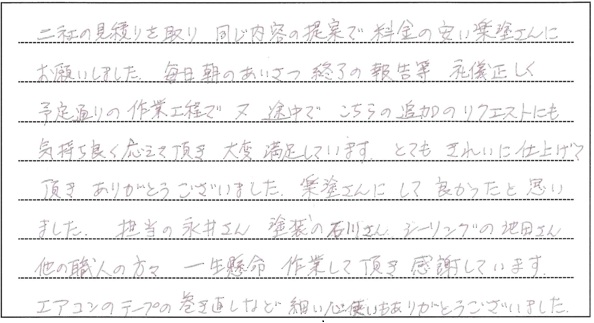 二社の見積りを取り 同じ内容の提案で 料金の安い楽塗さんに
お願いしました. 毎日朝のあいさつ 終了の報告等 礼儀正しく
予定通りの作業工程で 又 途中で こちらの追加のリクエストにも
気持ち良く応えて頂き 大変満足しています. とても きれいに仕上げて
頂き ありがとうございました. 楽塗さんにして良かったと思い
ました. 担当の永井さん 塗装の石川さん シーリングの池田さん
他の職人の方々 一生懸命 作業して頂き感謝しています
エアコンのテープの巻き直しなど 細い心使いもありがとうございました.